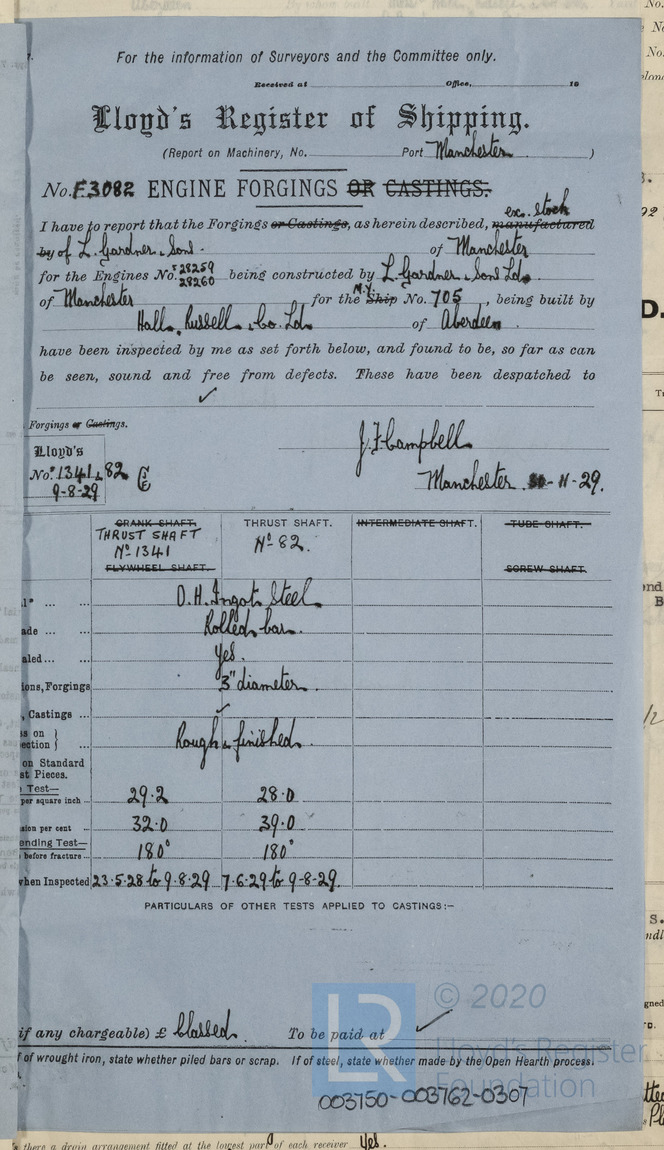 For the information of Surveyors and the Committee only.
Received at Office, 19
Lloyd's Register of Shipping.
(Report on Machinery, No. Port Manchester )
No. F3082 ENGINE FORGINGS OR CASTINGS.
exc. stock
I have to report that the Forgings or Castings, as herein described, manufactured
by of L. Gardner & Sons. of Manchester
for the Engines No. 28259 28260 being constructed by L. Gardner & Sons Ld.
of Manchester for the M.Y. Ship No. 705, being built by
Hall, Russell & Co. Ld. of Aberdeen.
have been inspected by me as set forth below, and found to be, so far as can
be seen, sound and free from defects. These have been despatched to
✓
Forgings or Castings.
Lloyd's
No. 1341 & 82
9-8-29
J. F. Campbell
Manchester. -11-29.
CRANK SHAFT. THRUST SHAFT. INTERMEDIATE SHAFT. TUBE SHAFT.
THRUST SHAFT
No 1341 No 82.
FLYWHEEL SHAFT. SCREW SHAFT.
O.H. Ingot Steel
ade ... Rolled bar.
aled ... Yes.
ions, Forgings 3" diameter.
, Castings ... ✓
s on
ection } Rough & finished.
on Standard
st Pieces.
Test—
per square inch 29.2 28.0
sion per cent 32.0 39.0
ending Test—
before fracture 180° 180°
when Inspected 23.5.28 to 9.8.29 7.6.29 to 9-8-29.
PARTICULARS OF OTHER TESTS APPLIED TO CASTINGS:—
if any chargeable) £ classed. To be paid at ✓
f of wrought iron, state whether piled bars or scrap. If of steel, state whether made by the Open Hearth process.
© 2020
LR
Lloyd's Register
Foundation
003750-003762-0307
there a drain arrangement fitted at the lowest part of each receiver Yes.